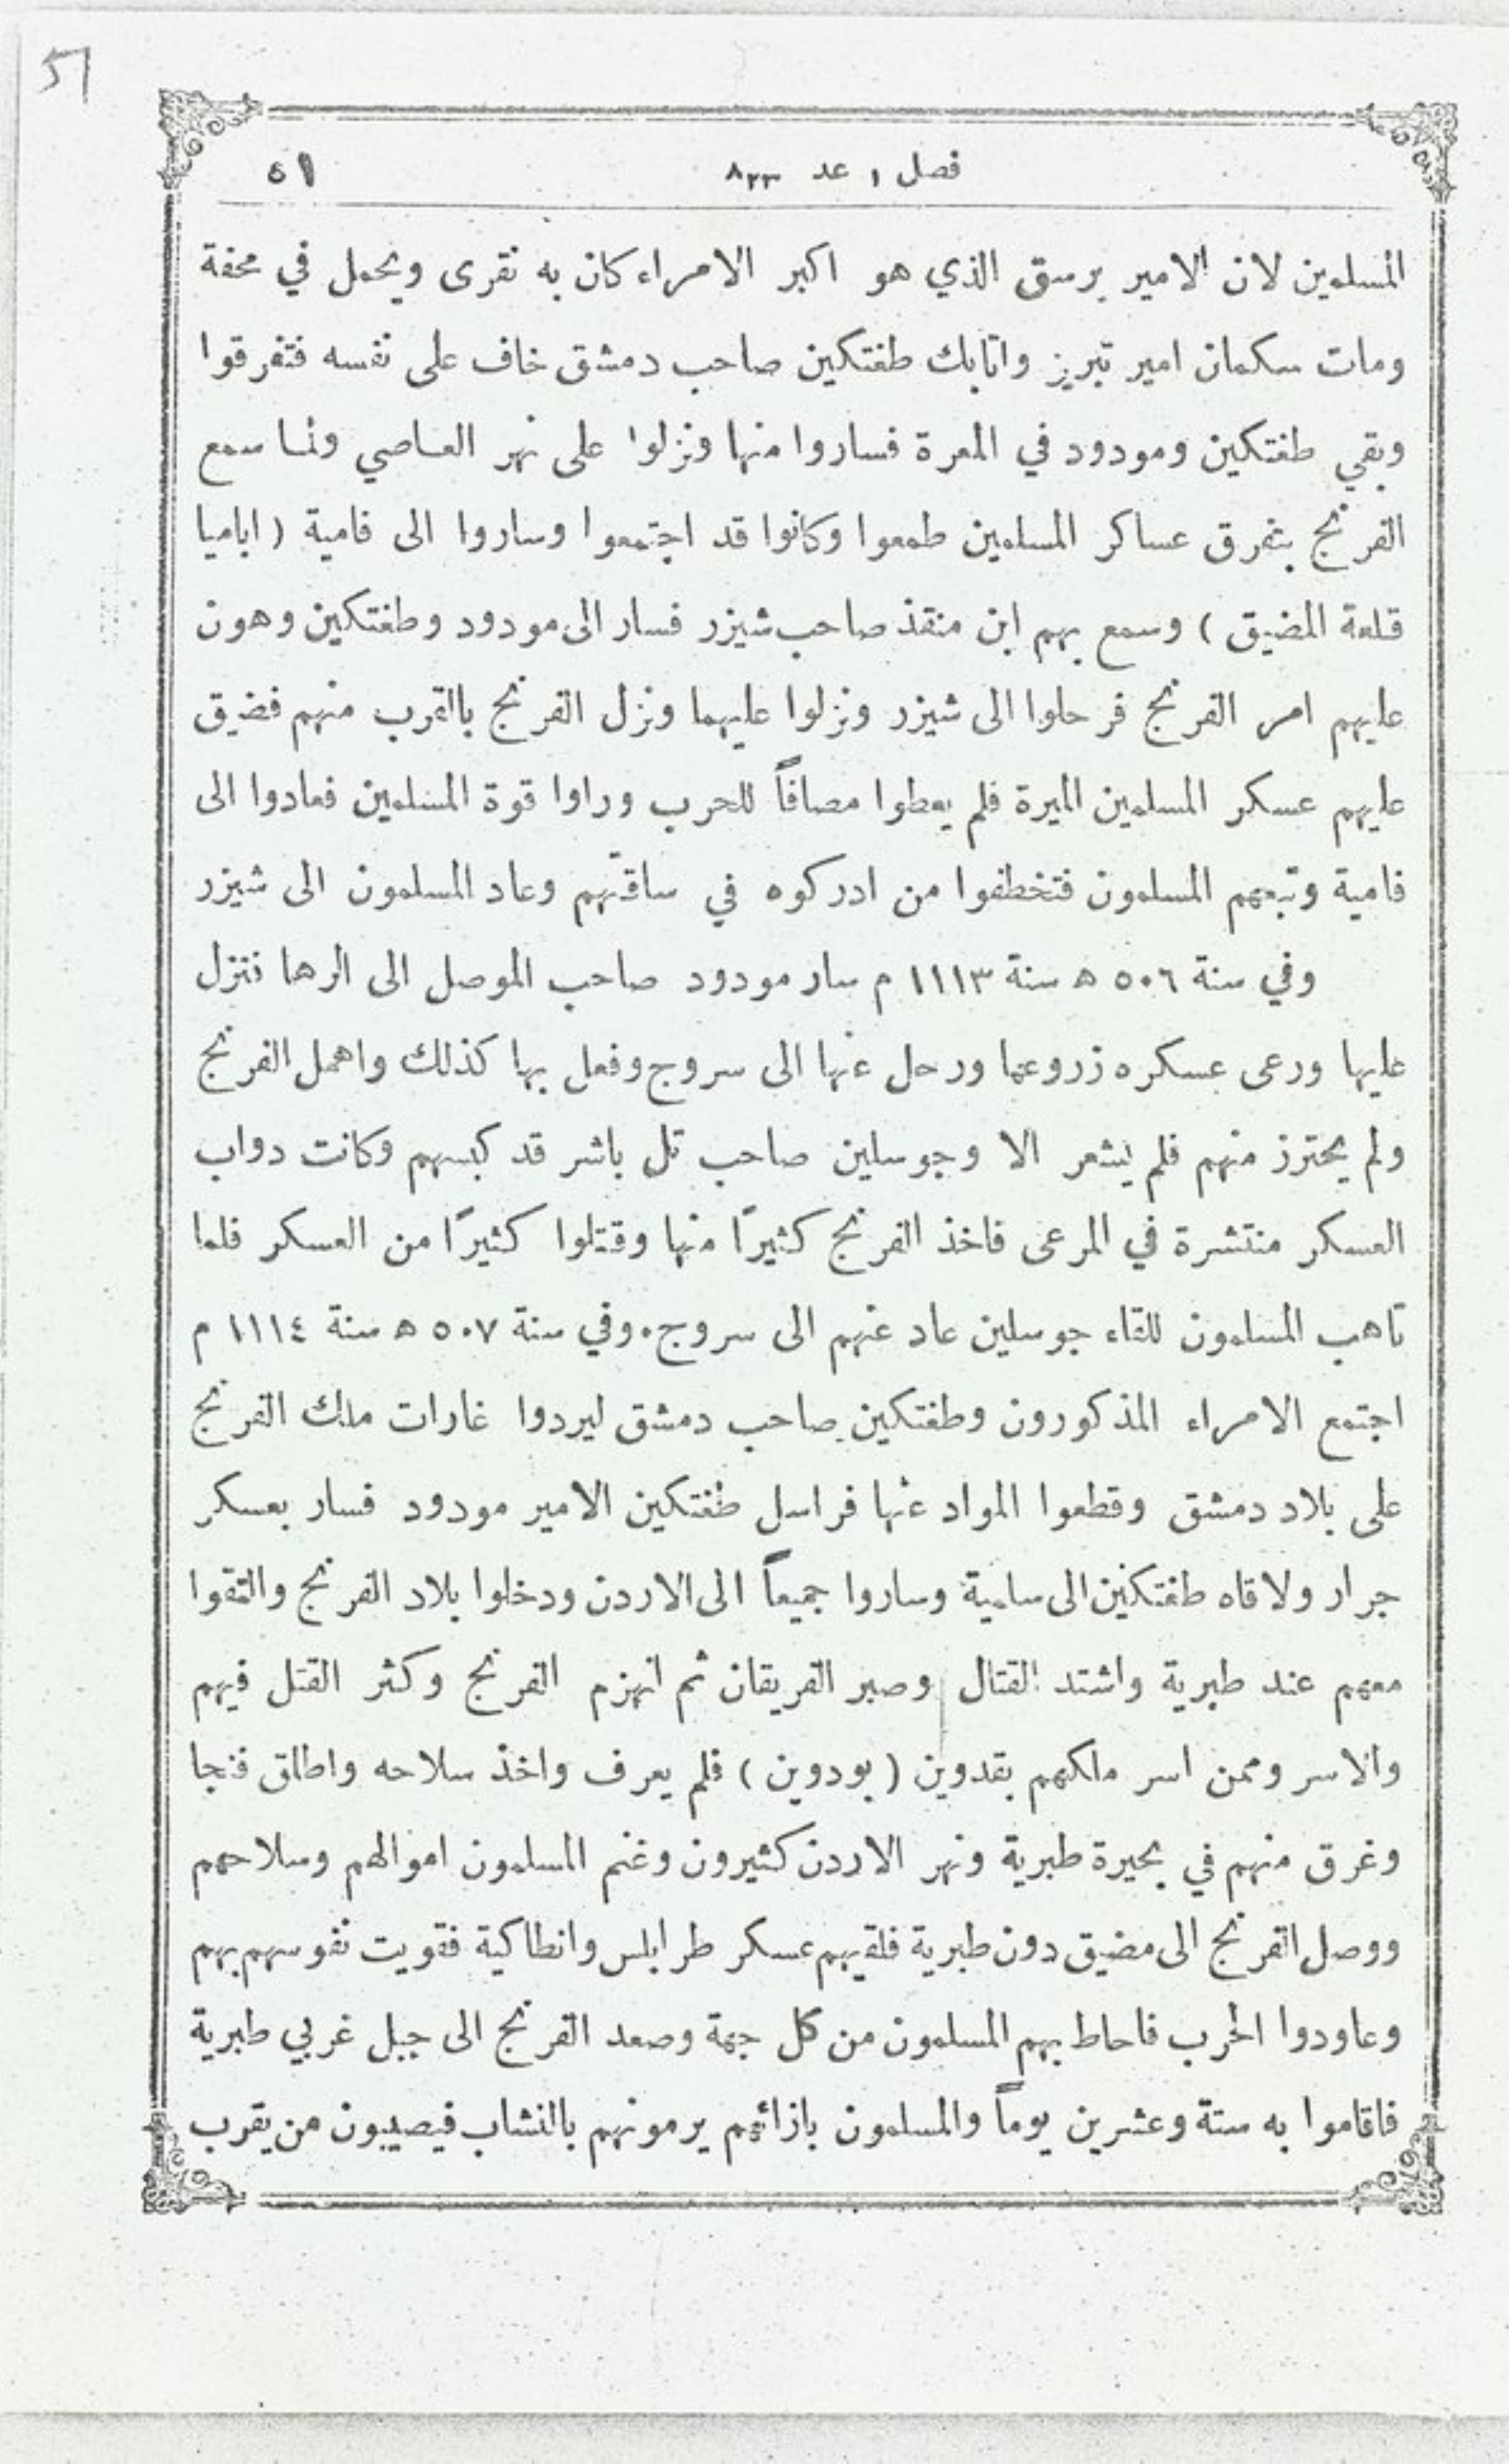 51
فصل ١ عد ٨٢٣ ٥١
المسلمين لان الامير برسق الذي هو اكبر الامراء كان به نقرى ويحمل في محفة
ومات سكمان امير تبريز واتابك طغتكين صاحب دمشق خاف على نفسه فتفرقوا
وبقي طغتكين ومودود في المعرة فساروا منها ونزلوا على نهر العاصي ولما سمع
الفرنج بتفرق عساكر المسلمين طمعوا وكانوا قد اجتمعوا وساروا الى فامية ( اباميا
قلعة المضيق ) وسمع بهم ابن منقذ صاحب شيزر فسار الى مودود وطغتكين وهون
عليهم امر الفرنج فرحلوا الى شيزر ونزلوا عليهما ونزل الفرنج بالقرب منهم فضيق
عليهم عسكر المسلمين الميرة فلم يعطوا مصافاً للحرب وراوا قوة المسلمين فعادوا الى
فامية وتبعهم المسلمون فتخطفوا من ادركوه في ساقتهم وعاد المسلمون الى شيزر
وفي سنة ٥٠٦ ه سنة ١١١٣ م سار مودود صاحب الموصل الى الرها فنزل
عليها ورعى عسكره زروعها ورحل عنها الى سروج وفعل بها كذلك واهمل الفرنج
ولم يحترز منهم فلم يشعر الا وجوسلين صاحب تل باشر قد كبسهم وكانت دواب
العسكر منتشرة في المرعى فاخذ الفرنج كثيرًا منها وقتلوا كثيرًا من العسكر فلما
تاهب المسلمون للقاء جوسلين عاد عنهم الى سروج. وفي سنة ٥٠٧ ه سنة ١١١٤ م
اجتمع الامراء المذكورون وطغتكين صاحب دمشق ليردوا غارات ملك الفرنج
على بلاد دمشق وقطعوا المواد عنها فراسل طغتكين الامير مودود فسار بعسكر
جرار ولاقاه طغتكين الى سلمية وساروا جميعاً الى الاردن ودخلوا بلاد الفرنج والتقوا
معهم عند طبرية واشتد القتال وصبر الفريقان ثم انهزم الفرنج وكثر القتل فيهم
والاسر وممن اسر ملكهم بقدوين ( بودوين ) فلم يعرف واخذ سلاحه واطلق فنجا
وغرق منهم في بحيرة طبرية ونهر الاردن كثيرون وغنم المسلمون اموالهم وسلاحهم
ووصل الفرنج الى مضيق دون طبرية فلقيهم عسكر طرابلس وانطاكية فقويت نفوسهم بهم
وعاودوا الحرب فاحاط بهم المسلمون من كل جهة وصعد الفرنج الى جبل غربي طبرية
فاقاموا به ستة وعشرين يوماً والمسلمون بازائهم يرمونهم بالنشاب فيصيبون من يقرب